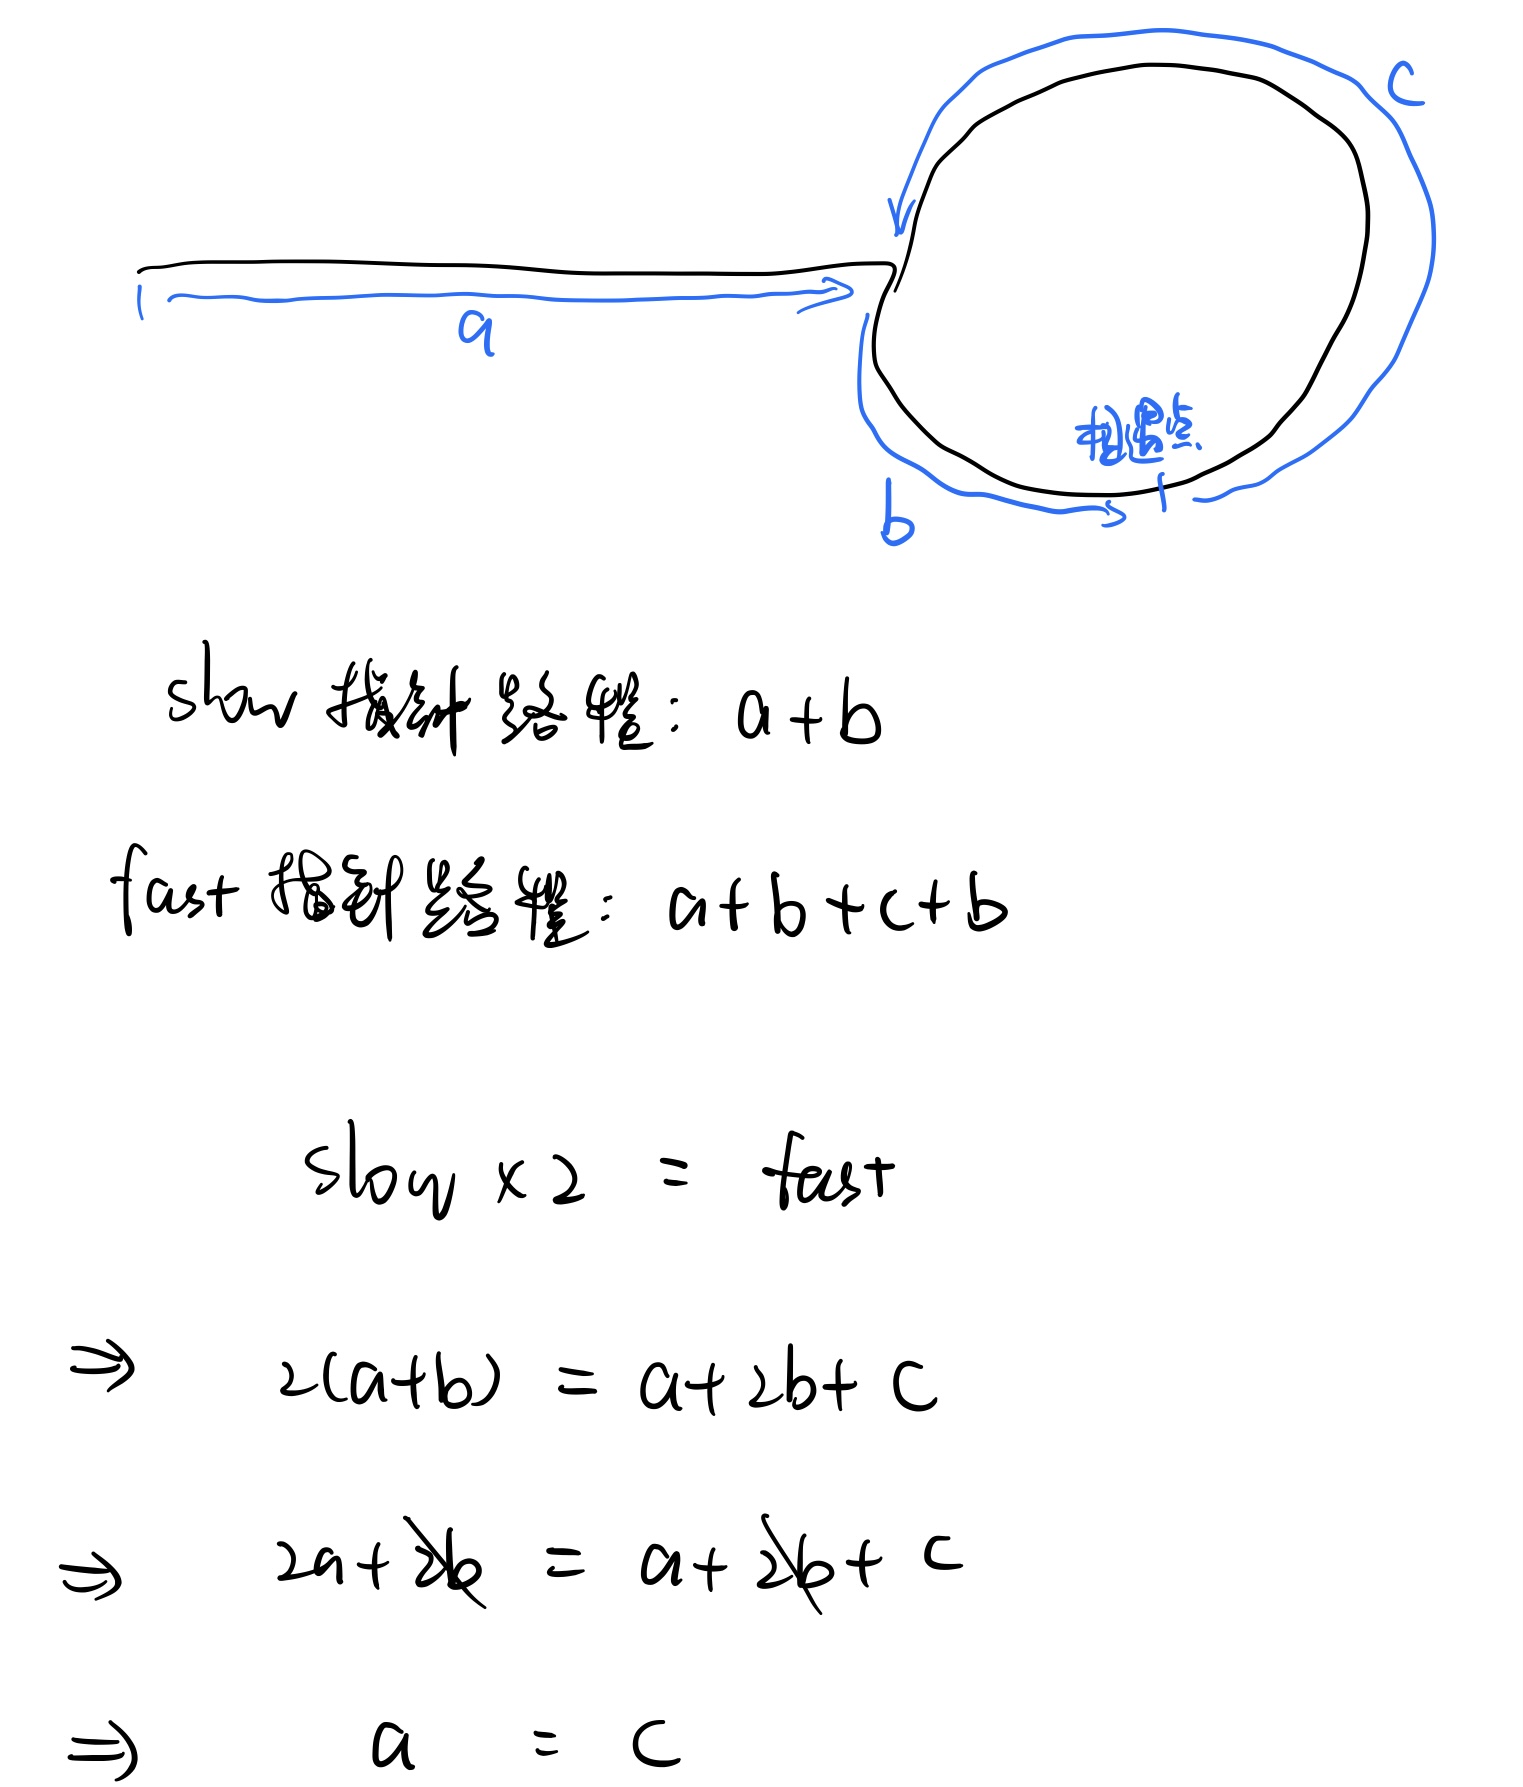 c
a
相遇点
b
slow 指针路程: a+b
fast 指针路程: a+b+c+b
slow × 2 = fast
⇒ 2(a+b) = a+2b+c
⇒ 2a+2b = a+2b+c
⇒ a = c